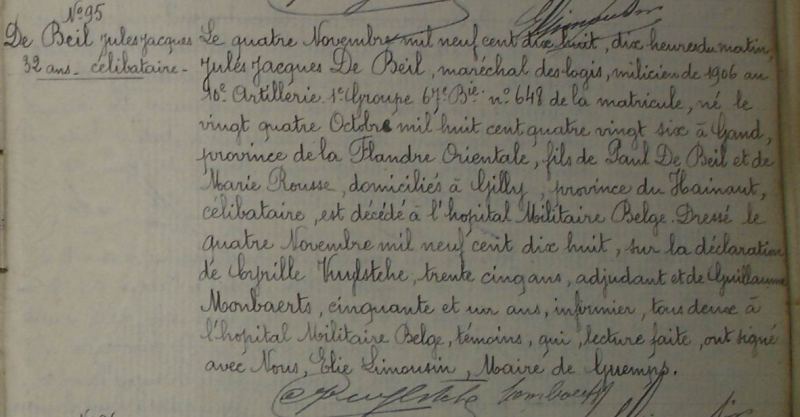 No 95
De Beil Jules Jacques
32 ans - célibataire -
Le quatre Novembre mil neuf cent dix huit, dix heures du matin,
Jules Jacques De Beil, maréchal des-logis, milicien de 1906 au
10e Artillerie 1e Groupe 67e Bie no 648 de la matricule, né le
vingt quatre Octobre mil huit cent quatre vingt six à Gand,
province de la Flandre Orientale, fils de Paul De Beil et de
Marie Rousse, domiciliés à Gilly, province du Hainaut,
célibataire, est décédé à l'hopital Militaire Belge. Dressé le
quatre Novembre mil neuf cent dix huit, sur la déclaration
de Cyrille Kuylstehe, trente cinq ans, adjudant et de Guillaume
Monbaerts, cinquante et un ans, infirmier, tous deux à
l'hopital Militaire Belge, témoins, qui, lecture faite, ont signé
avec Nous, Elie Limousin, Maire de Guemps.